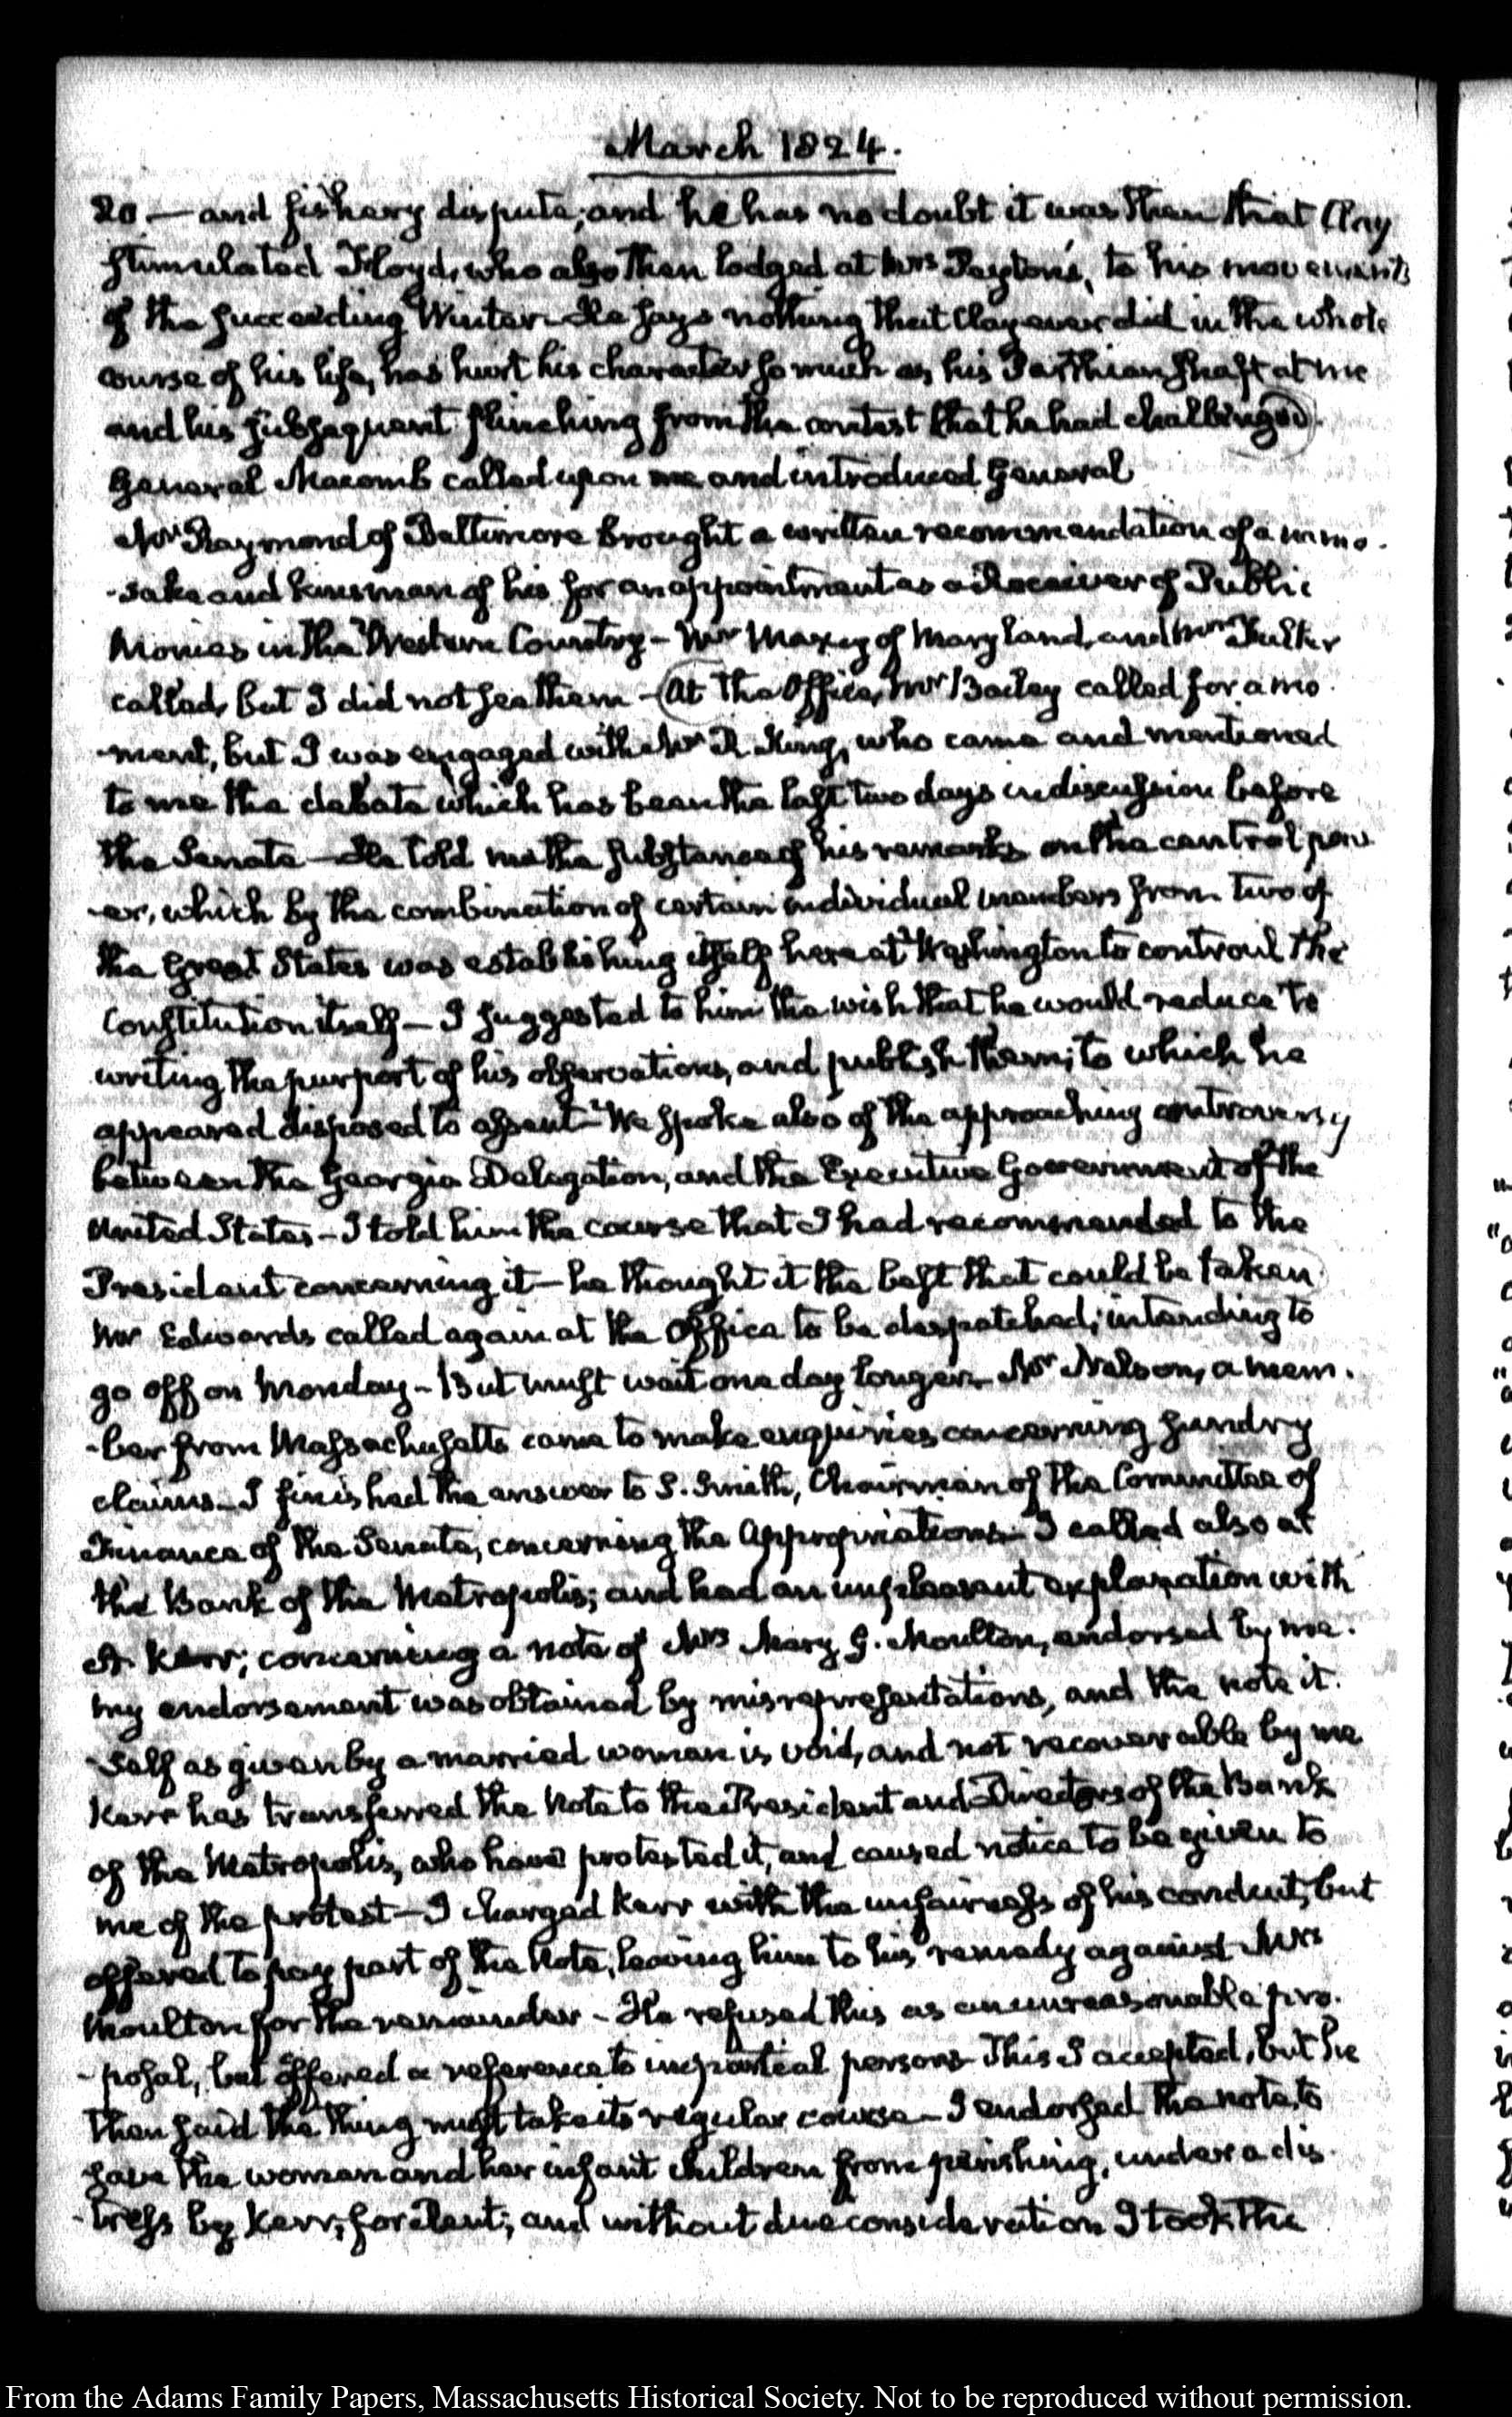 March 1824.
20 — and fishery dispute; and he has no doubt it was then that Clay
stimulated Floyd, who also then lodged at Mrs Peyton's, to his movements
of the succeeding Winter — He says nothing that Clay ever did in the whole
course of his life, has hurt his character so much as his Parthian shaft at me
and his subsequent flinching from the contest that he had challenged.
General Macomb called upon me and introduced General
Mr Raymond of Baltimore brought a written recommendation of a
-sake and kinsman of his for an appointment as a Receiver of Public
Monies in the Western Country — Mr Maxcy of Maryland, and Mr
called, but I did not see them — At the Office, Mr Bailey called for a mo-
-ment, but I was engaged with Mr R. King, who came and mentioned
to me the debate which has been the last two days in discussion before
the Senate — He told me the substance of his remarks on the central pow-
-er, which by the combination of certain individual members from two of
the great States was establishing itself here at Washington to controul the
Constitution itself — I suggested to him the wish that he would reduce to
writing the purport of his observations, and publish them; to which he
appeared disposed to assent — We spoke also of the approaching controversy
between the Georgia Delegation, and the Executive Government of the
United States — I told him the course that I had recommended to the
President concerning it — he thought it the best that could be taken.
Mr Edwards called again at the Office to be despatched; intending to
go off on Monday — But must wait one day longer. Mr Nelson, a mem-
-ber from Massachusetts came to make enquiries concerning sundry
claims — I finished the answer to S. Smith, Chairman of the Committee of
Finance of the Senate, concerning the Appropriations — I called also at
the Bank of the Metropolis; and had an unpleasant explanation with
A. Kerr; concerning a note of Mrs Mary G. Moulton, endorsed by me.
my endorsement was obtained by misrepresentations, and the note it-
-self as given by a married woman is void, and not recoverable by me
Kerr has transferred the Note to the President and Directors of the Bank
of the Metropolis, who have protested it, and caused notice to be given to
me of the protest — I charged Kerr with the unfairness of his conduct, but
offered to pay part of the Note, leaving him to his remedy against Mrs
Moulton for the remainder — He refused this as an unreasonable pro-
-posal, but offered a reference to impartial persons — This I accepted, but he
then said the thing must take its regular course — I endorsed the note, to
save the woman and her infant children from perishing, under a dis-
-tress by Kerr, for Rent; and without due consideration I took the
From the Adams Family Papers, Massachusetts Historical Society. Not to be reproduced without permission.